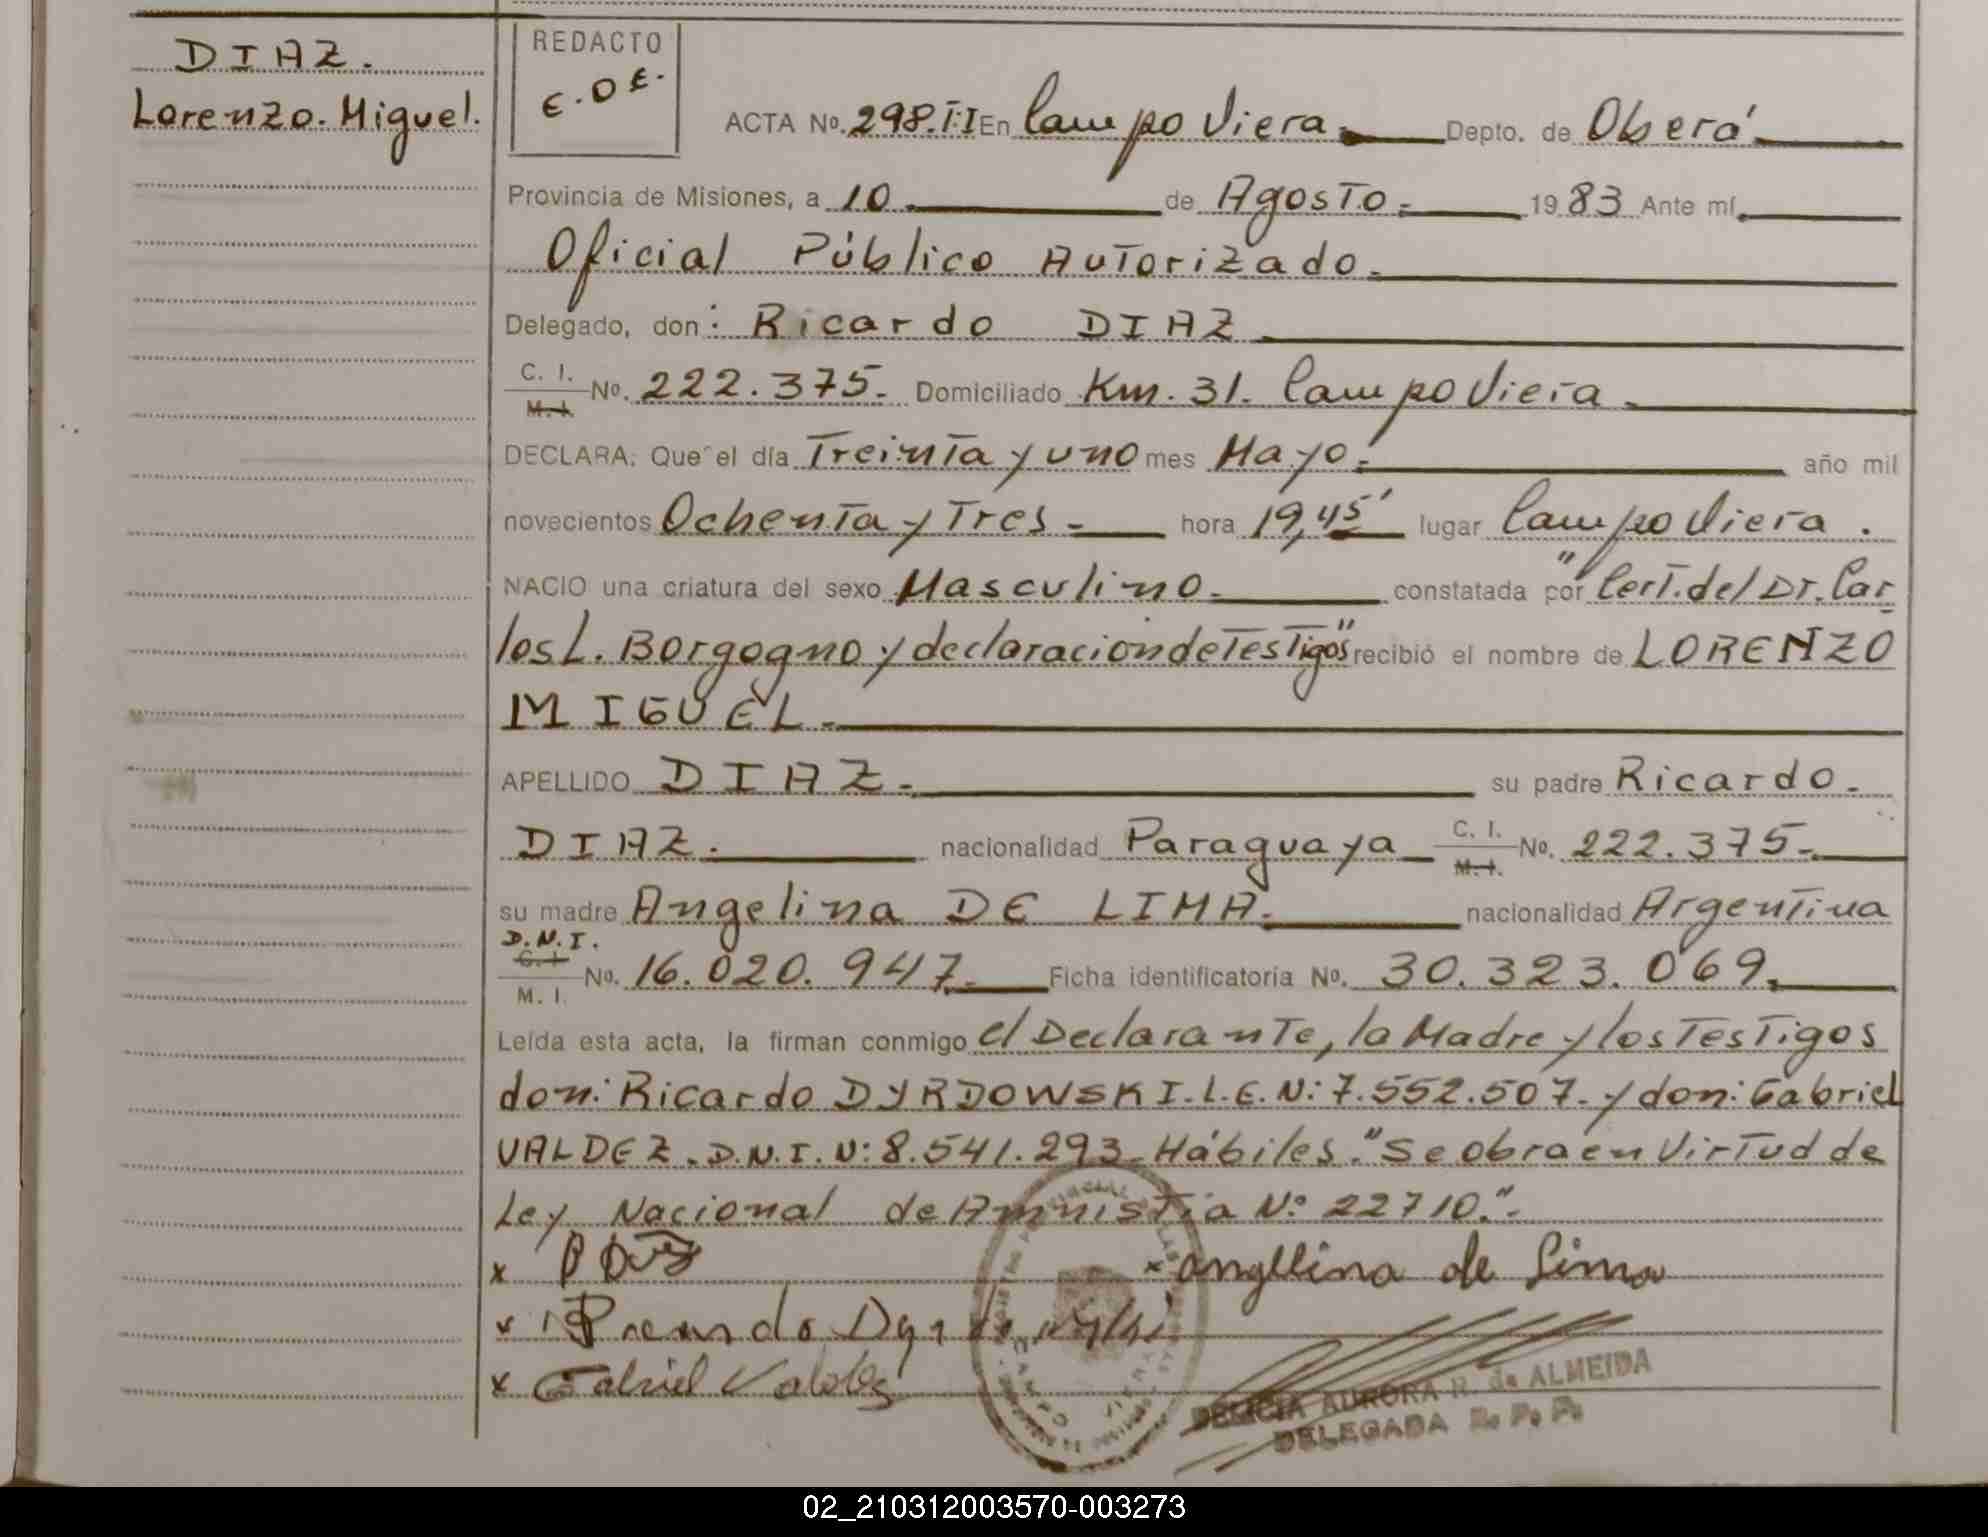 DIAZ.
Lorenzo. Miguel.
REDACTO
E.D.E.
ACTA No. 298.T.I En Campo Viera. Depto. de Oberá
Provincia de Misiones, a 10. de Agosto. 1983 Ante mí.
Oficial Público Autorizado.
Delegado, don: Ricardo DIAZ
C. I. M. I. No. 222.375. Domiciliado Km. 31. Campo Viera.
DECLARA: Que el día Treinta y uno mes Mayo. año mil
novecientos Ochenta y Tres. hora 19,45' lugar Campo Viera.
NACIO una criatura del sexo Masculino. constatada por "Cert. del Dr. Car
los L. Borgogno y declaracion de Testigos" recibió el nombre de LORENZO
MIGUEL.
APELLIDO DIAZ. su padre Ricardo.
DIAZ. nacionalidad Paraguaya C. I. M. I. No. 222.375.
su madre Angelina DE LIMA. nacionalidad Argentina
D.N.I. C. I. M. I. No. 16.020.947. Ficha identificatoria No. 30.323.069.
Leída esta acta, la firman conmigo el Declarante, la Madre y los Testigos
don: Ricardo DYRDOWSKI. L.E. N: 7.552.507. y don: Gabriel
VALDEZ. D.N.I. N: 8.541.293. Hábiles. "Se obra en Virtud de
Ley Nacional de Amnistía Nº 22710.".
x x angellina de Lima
x Ricardo Dyrdowski
x Gabriel Valdez
DELICIA AURORA R. de ALMEIDA
DELEGADA R. P. P.
02_210312003570-003273